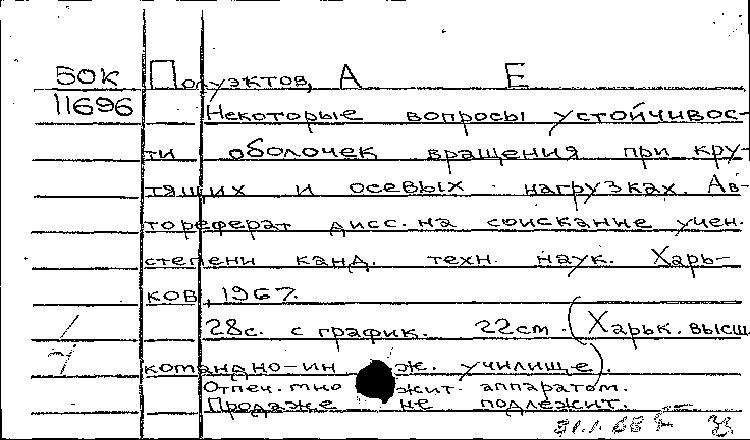 БОК Полуэктов, А Е
11696 Некоторые вопросы устойчивос-
ти оболочек вращения при кру-
тящих и осевых нагрузках. Ав-
тореферат дисс. на соискание учен.
степени канд. техн. наук. Харь-
ков, 1967.
28с. с график. 22см. (Харьк. высш.
командно-инж. училище).
Отпеч. множит. аппаратом.
Продаже не подлежит.